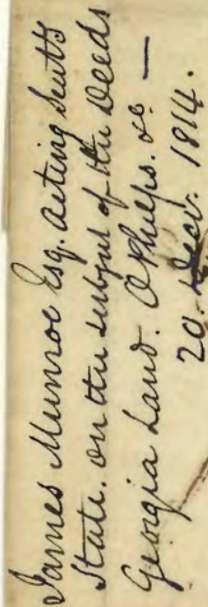 James Munroe Esq. acting Sect?
State. on the subject of the Deeds
Georgia Land. O Phelps. &c —
20. Decr. 1814.